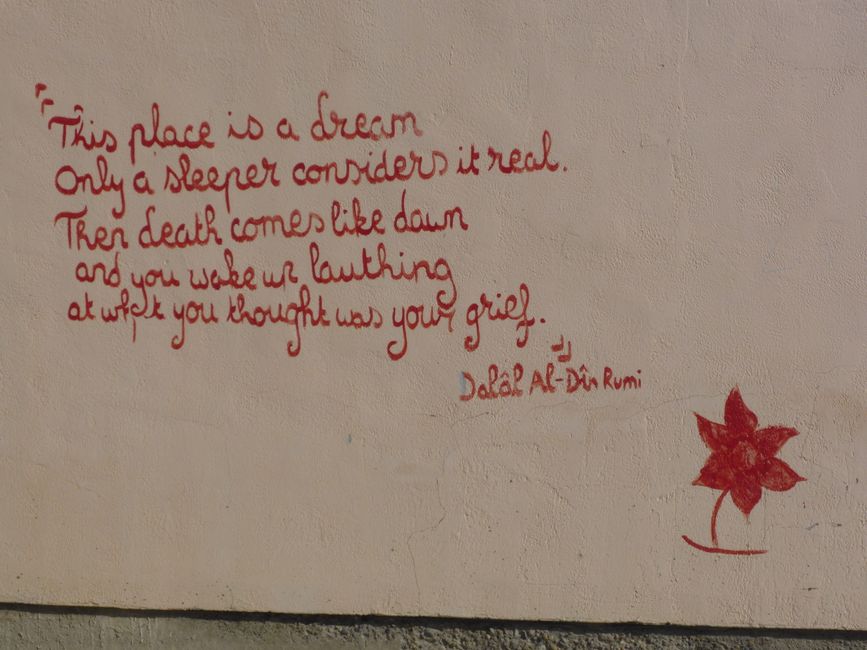 "This place is a dream
Only a sleeper considers it real.
Then death comes like dawn
and you wake up lauthing
at what you thought was your grief.
"
Dalâl Al-Dîn Rumi